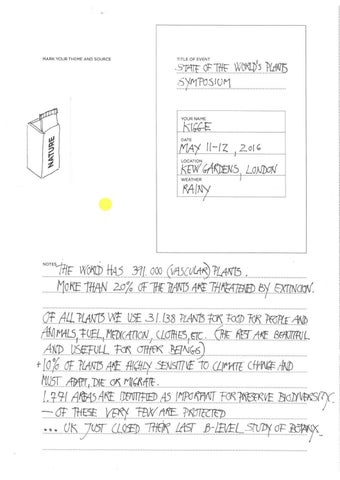 MARK YOUR THEME AND SOURCE
TITLE OF EVENT
STATE OF THE WORLD'S PLANTS
SYMPOSIUM
YOUR NAME
KIGGE
DATE
MAY 11-12, 2016
LOCATION
KEW GARDENS, LONDON
WEATHER
RAINY
NATURE
NOTES
THE WORLD HAS 391.000 (VASCULAR) PLANTS.
MORE THAN 20% OF THE PLANTS ARE THREATENED BY EXTINCION.
OF ALL PLANTS WE USE 31.138 PLANTS FOR FOOD FOR PEOPLE AND
ANIMALS, FUEL, MEDICATION, CLOTHES, ETC. (THE REST ARE BEAUTIFUL
AND USEFULL FOR OTHER BEINGS)
+10% OF PLANTS ARE HIGHLY SENSITIVE TO CLIMATE CHANGE AND
MUST ADAPT, DIE OR MIGRATE.
1.771 AREAS ARE IDENTIFIED AS IMPORTANT FOR PRESERVE BIODIVERSITY.
— OF THESE VERY FEW ARE PROTECTED
... UK JUST CLOSED THEIR LAST B-LEVEL STUDY OF BOTANIX.